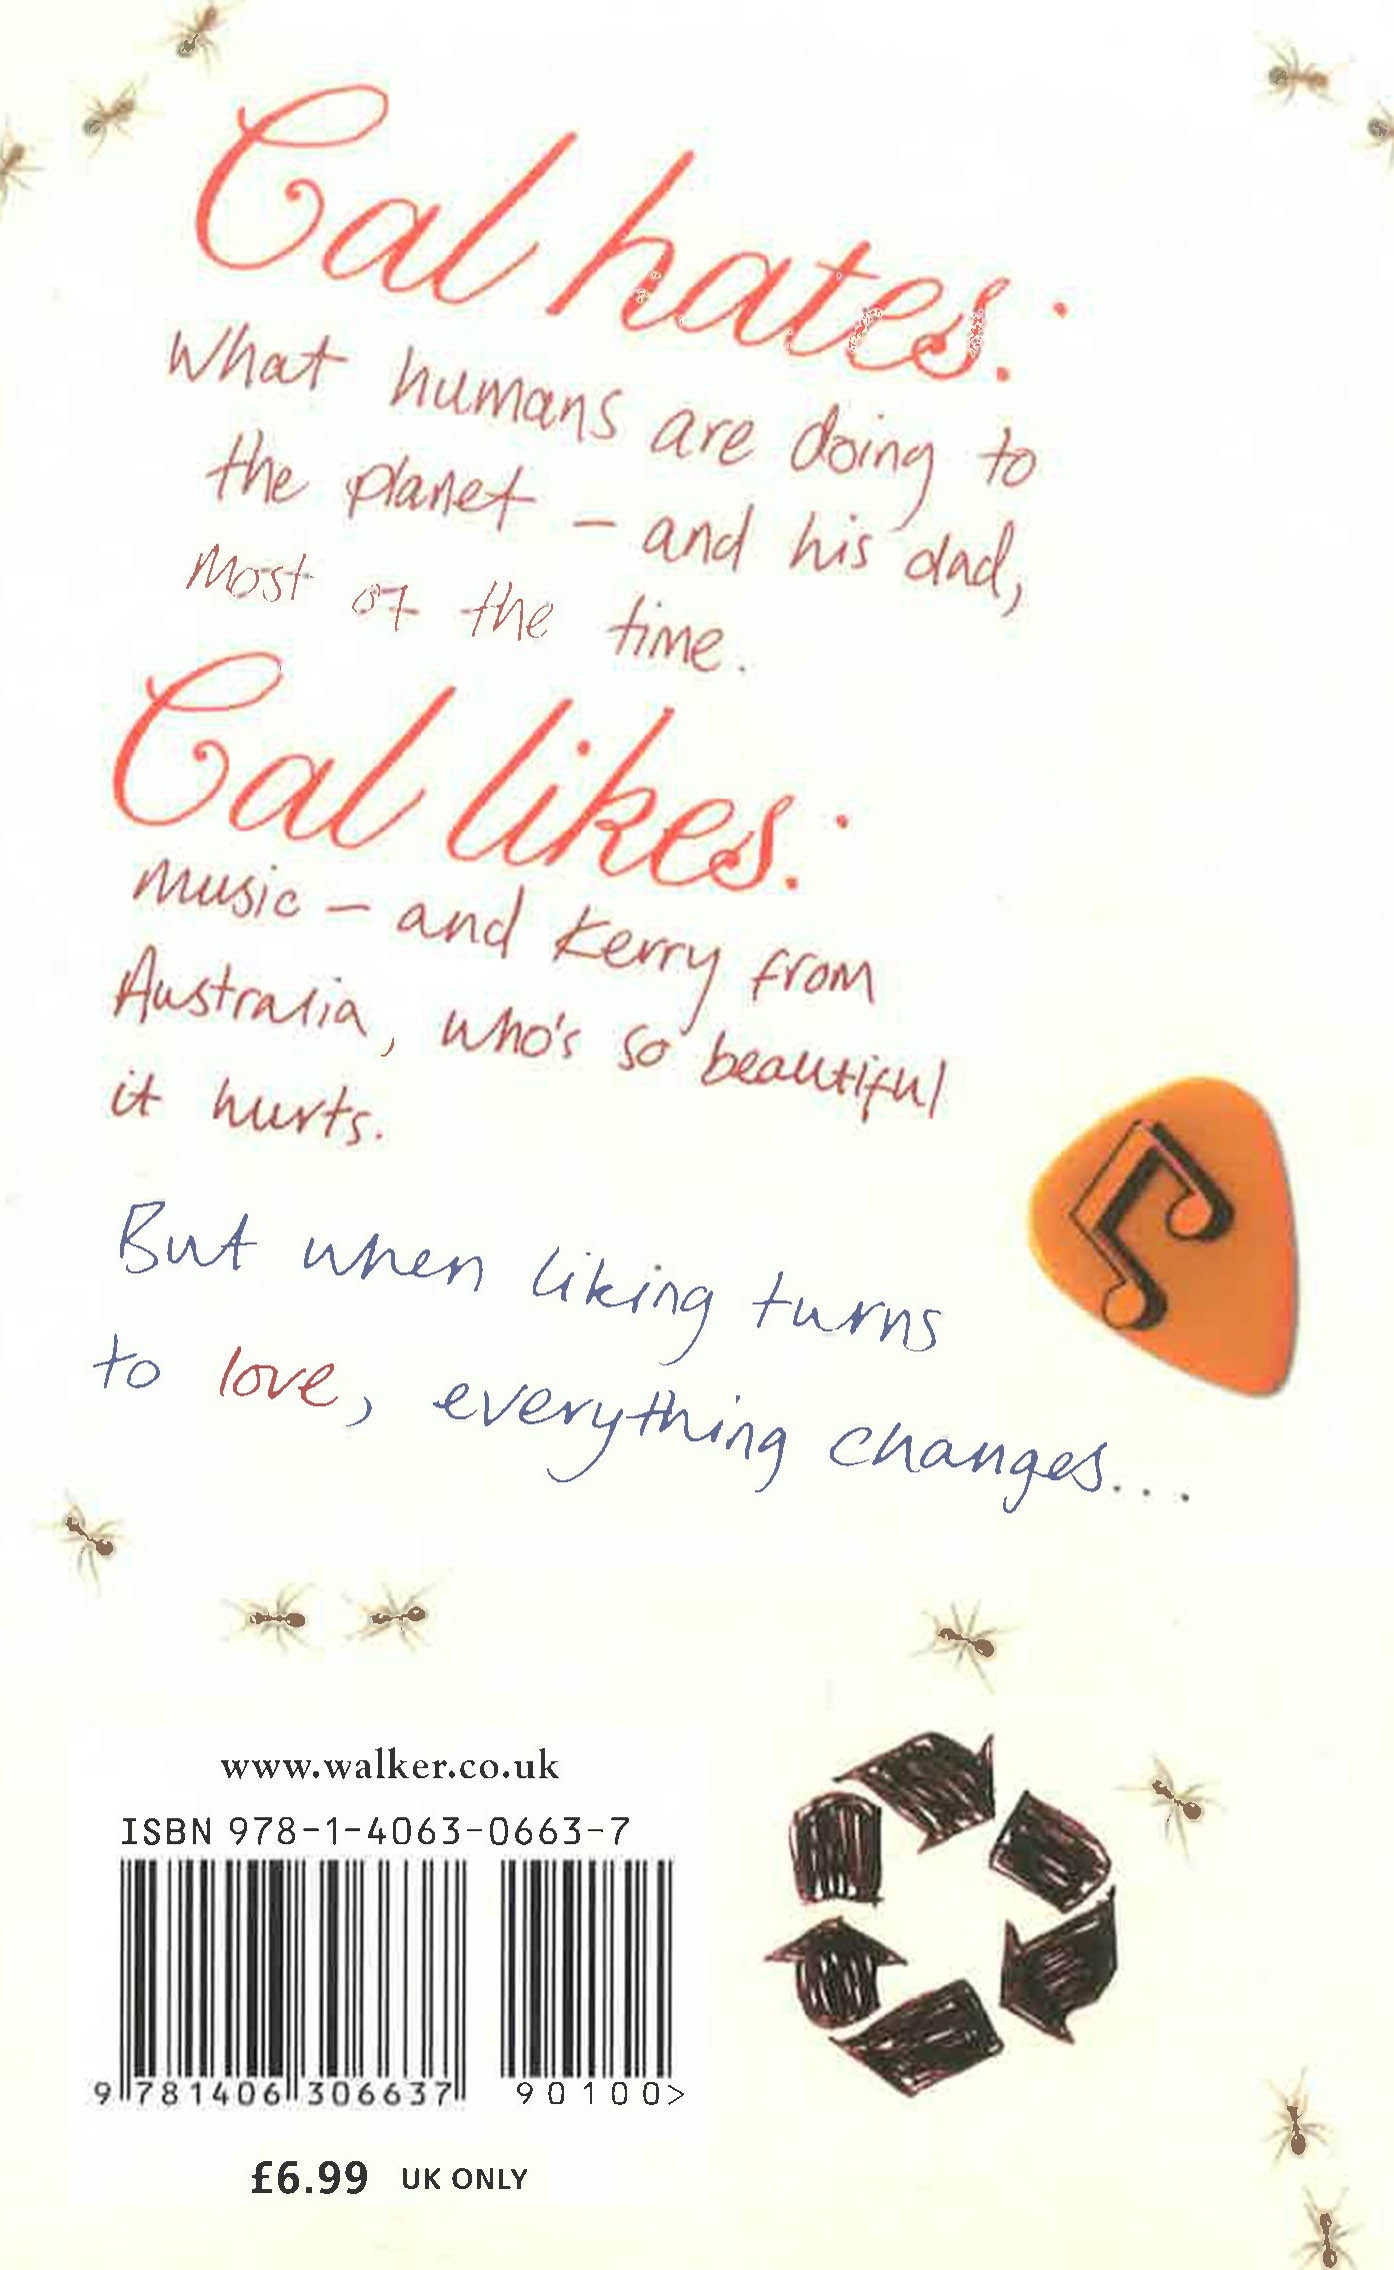 Cal hates:
What humans are doing to
the planet – and his dad,
most of the time.
Cal likes:
Music – and Kerry from
Australia, who's so beautiful
it hurts.
But when liking turns
to love, everything changes...
www.walker.co.uk
ISBN 978-1-4063-0663-7
9 781406 306637
90100>
£6.99 UK ONLY